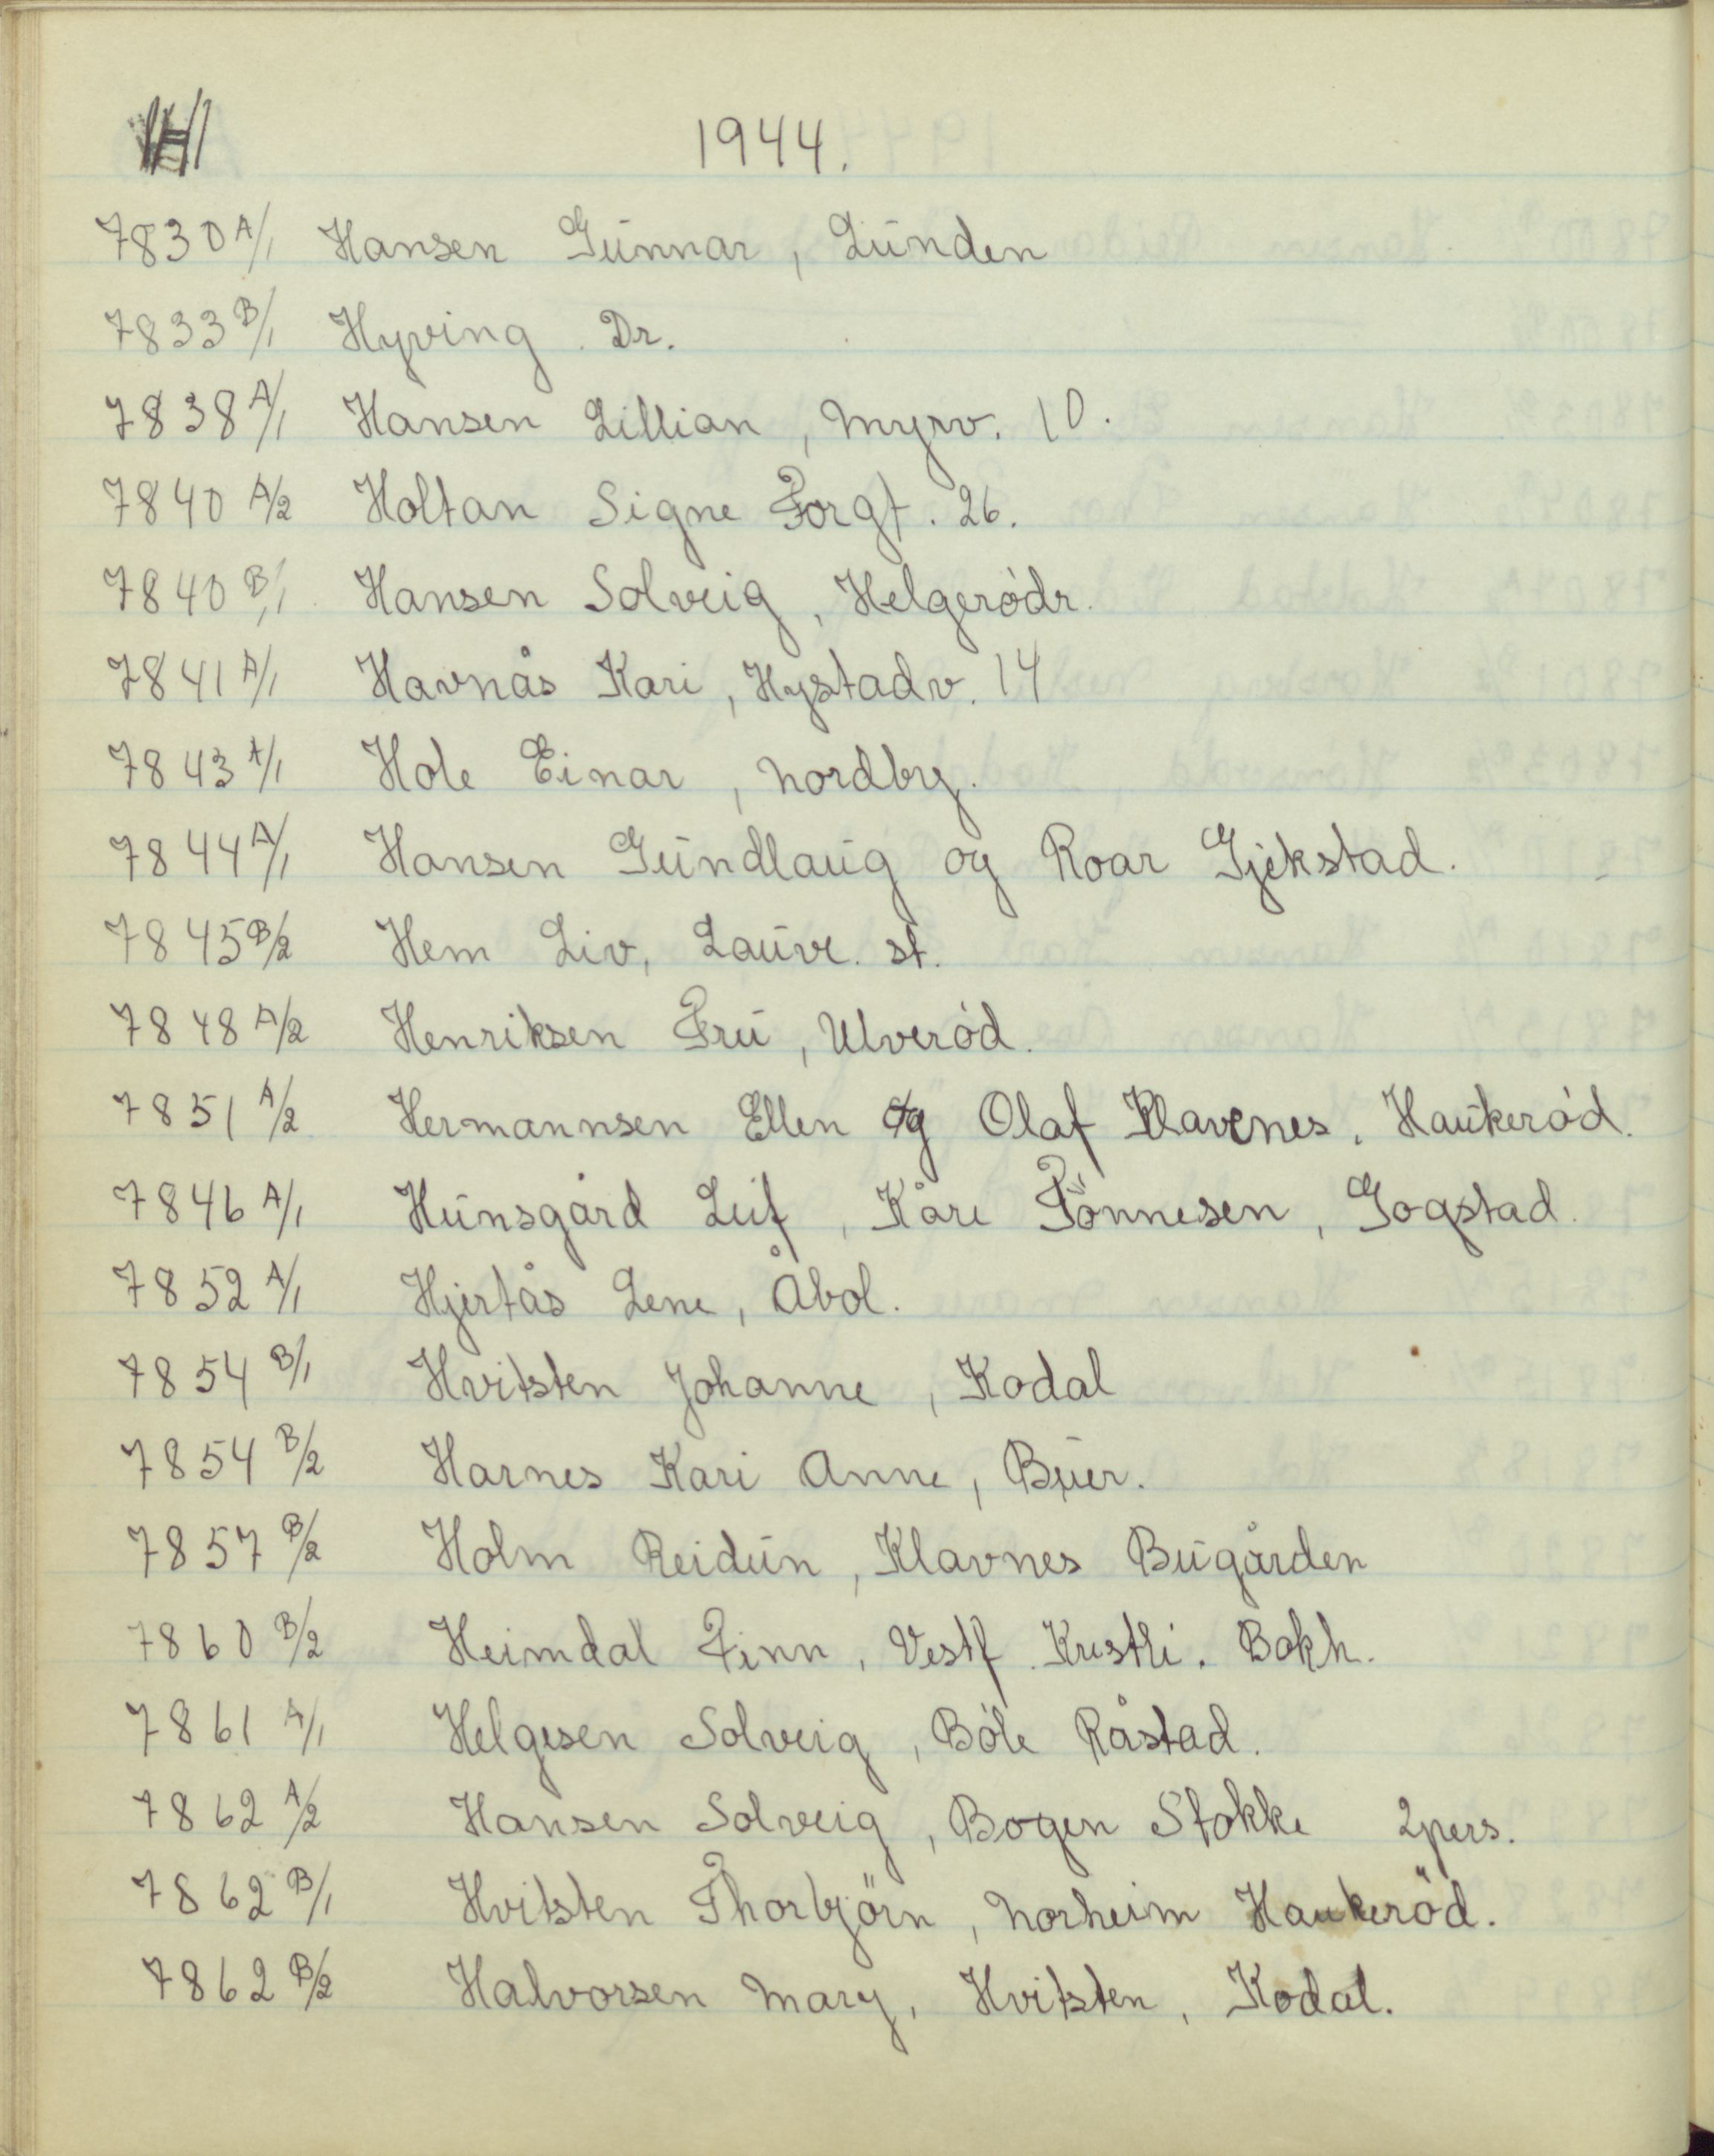 H 1944.
7830 A/1 Hansen Gunnar, Lunden
7833 B/1 Hyving Dr.
7838 A/1 Hansen Lillian, Myrv. 10.
7840 A/2 Holtan Signe Torgt. 26.
7840 B/1 Hansen Solveig, Helgerödr.
7841 A/1 Havnås Kari, Hystadv. 14
7843 A/1 Hole Einar, Nordby.
7844 A/1 Hansen Gundlaug og Roar Gjekstad.
7845 B/2 Hem Liv, Lauve. st.
7848 A/2 Henriksen Fru, Ulveröd.
7851 A/2 Hermannsen Ellen og Olaf Klavenes. Haukeröd.
7846 A/1 Hunsgård Leif, Kåre Tönnesen, Gogstad.
7852 A/1 Hjertås Lene, Åbol.
7854 B/1 Hvitsten Johanne, Kodal
7854 B/2 Harnes Kari Anne, Buer.
7857 B/2 Holm Reidun, Klavnes Bugården
7860 B/2 Heimdal Finn, Vestf. Kristli. Bokh.
7861 A/1 Helgesen Solveig, Böle Råstad.
7862 A/2 Hansen Solveig, Bogen Stokke 2pers.
7862 B/1 Hvitsten Thorbjörn, Norheim Haukeröd.
7862 B/2 Halvorsen Mary, Hvitsten, Kodal.